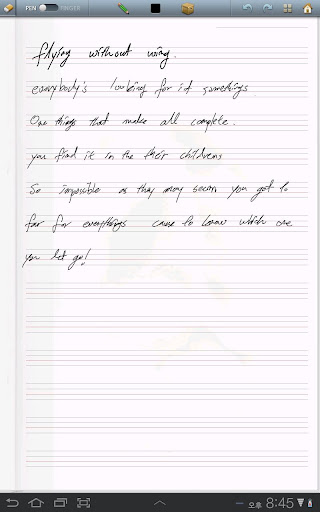 PEN FINGER
flying without wing.
everybody's looking for it somethings
One things that make all complete.
you find it in the their childrens
So impossible as they may seem you got to
far for everythings cause to know which one
you let go!
오후 8:45